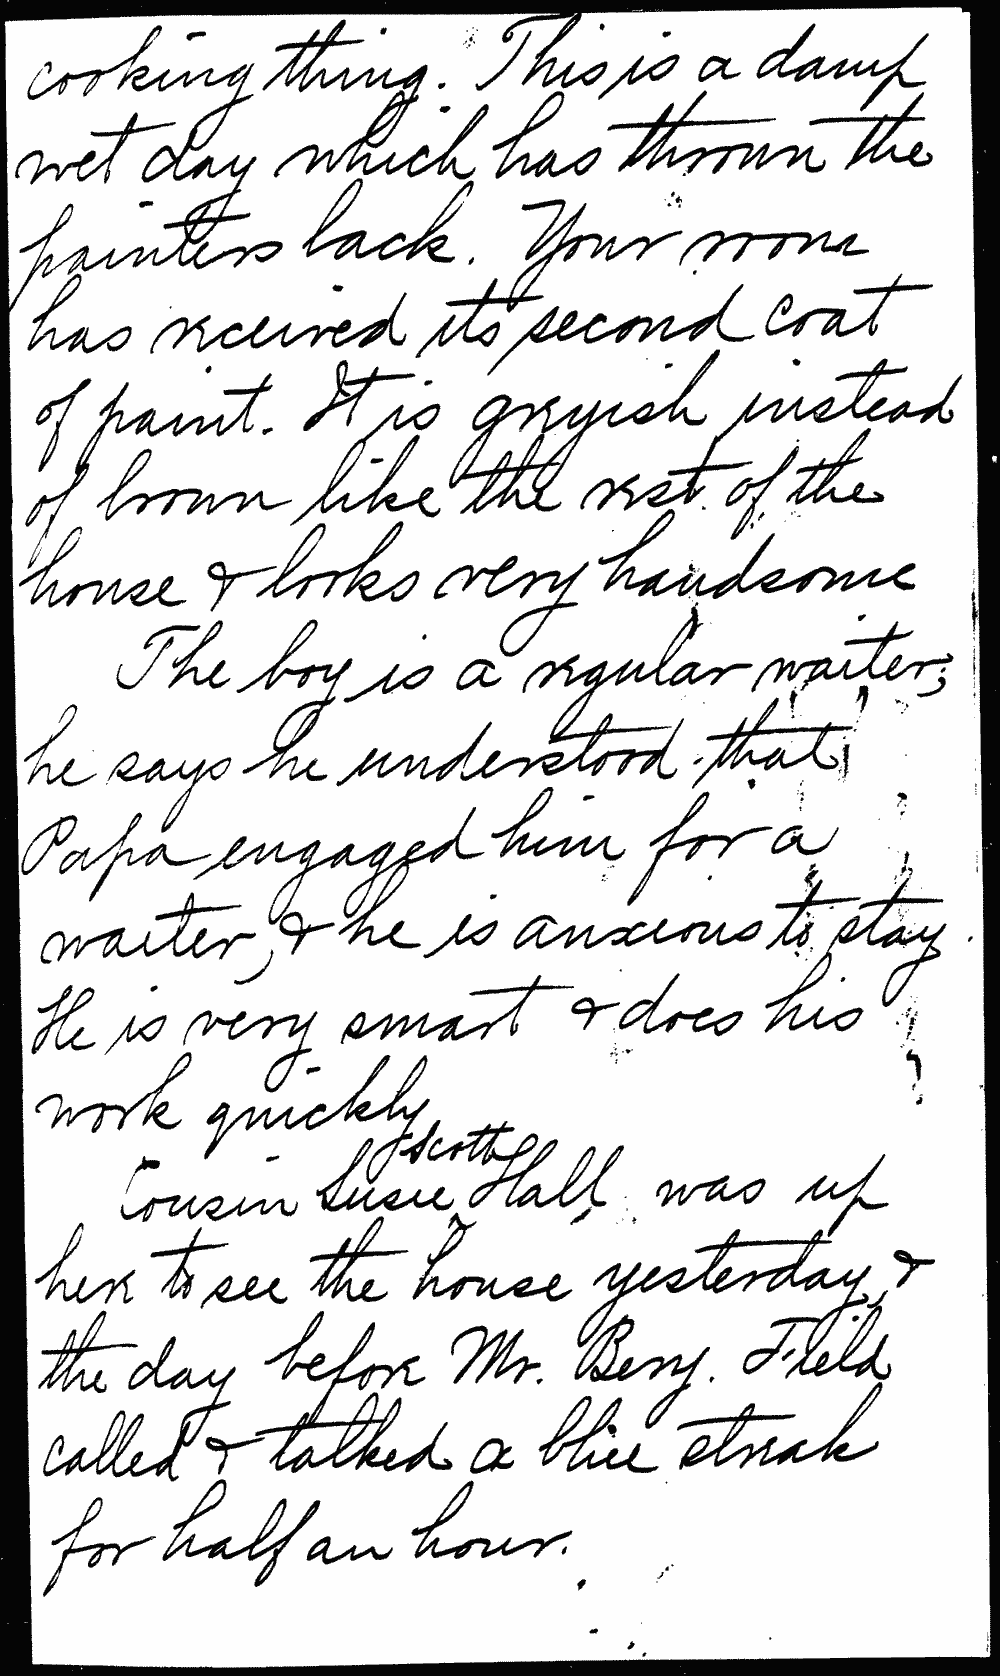 cooking thing. This is a damp
wet day which has thrown the
painters back. Your room
has received its second coat
of paint. It is greyish instead
of brown like the rest of the
house & looks very handsome
The boy is a regular waiter;
he says he understood that
Papa engaged him for a
waiter, & he is anxious to stay.
He is very smart & does his
work quickly
Scott
Cousin Susie Hall was up
here to see the house yesterday, &
the day before Mr. Benj. Field
called & talked a blue streak
for half an hour.